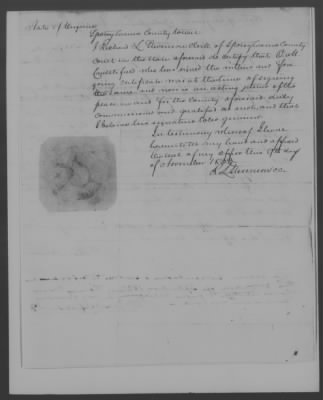 State of Virginia
Spotsylvania County to wit
I Robert L. Stevenson Clerk of Spotsylvania County
Court in the State aforesaid do certify that
who has signed the within and fore
going certificate was at the time of signing
the same and now is an acting justice of the
peace in and for the County aforesaid duly
commissioned and qualified as such and that
I believe his signature to be genuine
In testimony whereof I have
hereunto set my hand and affixed
the seal of my office this day
of November